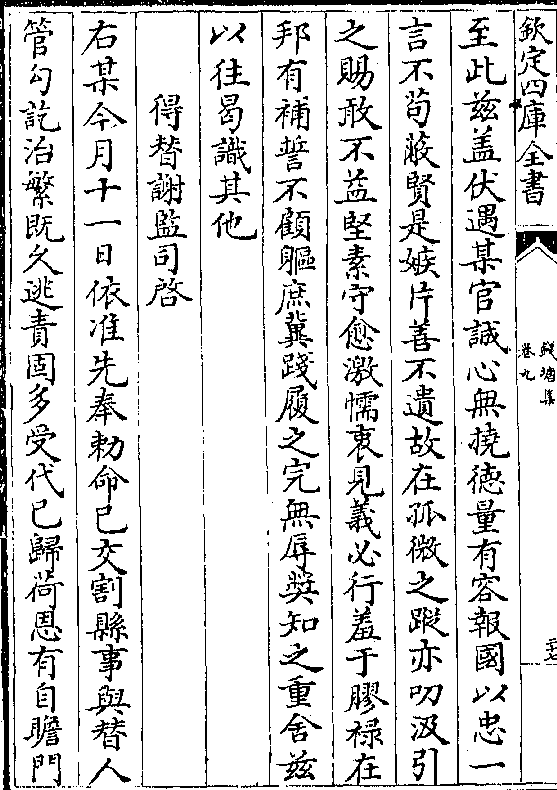 欽定四庫全書
錢塘集
卷九
至此兹盖伏遇某官誠心無撓德量有容報國以忠一
言不茍蔽賢是嫉片善不遺故在孤微之蹤亦叨汲引
之賜敢不益堅素守愈激懦衷見義必行羞于膠禄在
邦有補誓不顧軀庶冀踐履之完無辱奬知之重舍兹
以往曷識其他
得替謝監司啓
右某今月十一日依准先奉勅命已交割縣事與替人
管勾訖治繁既久逃責固多受代已歸荷恩有自瞻門